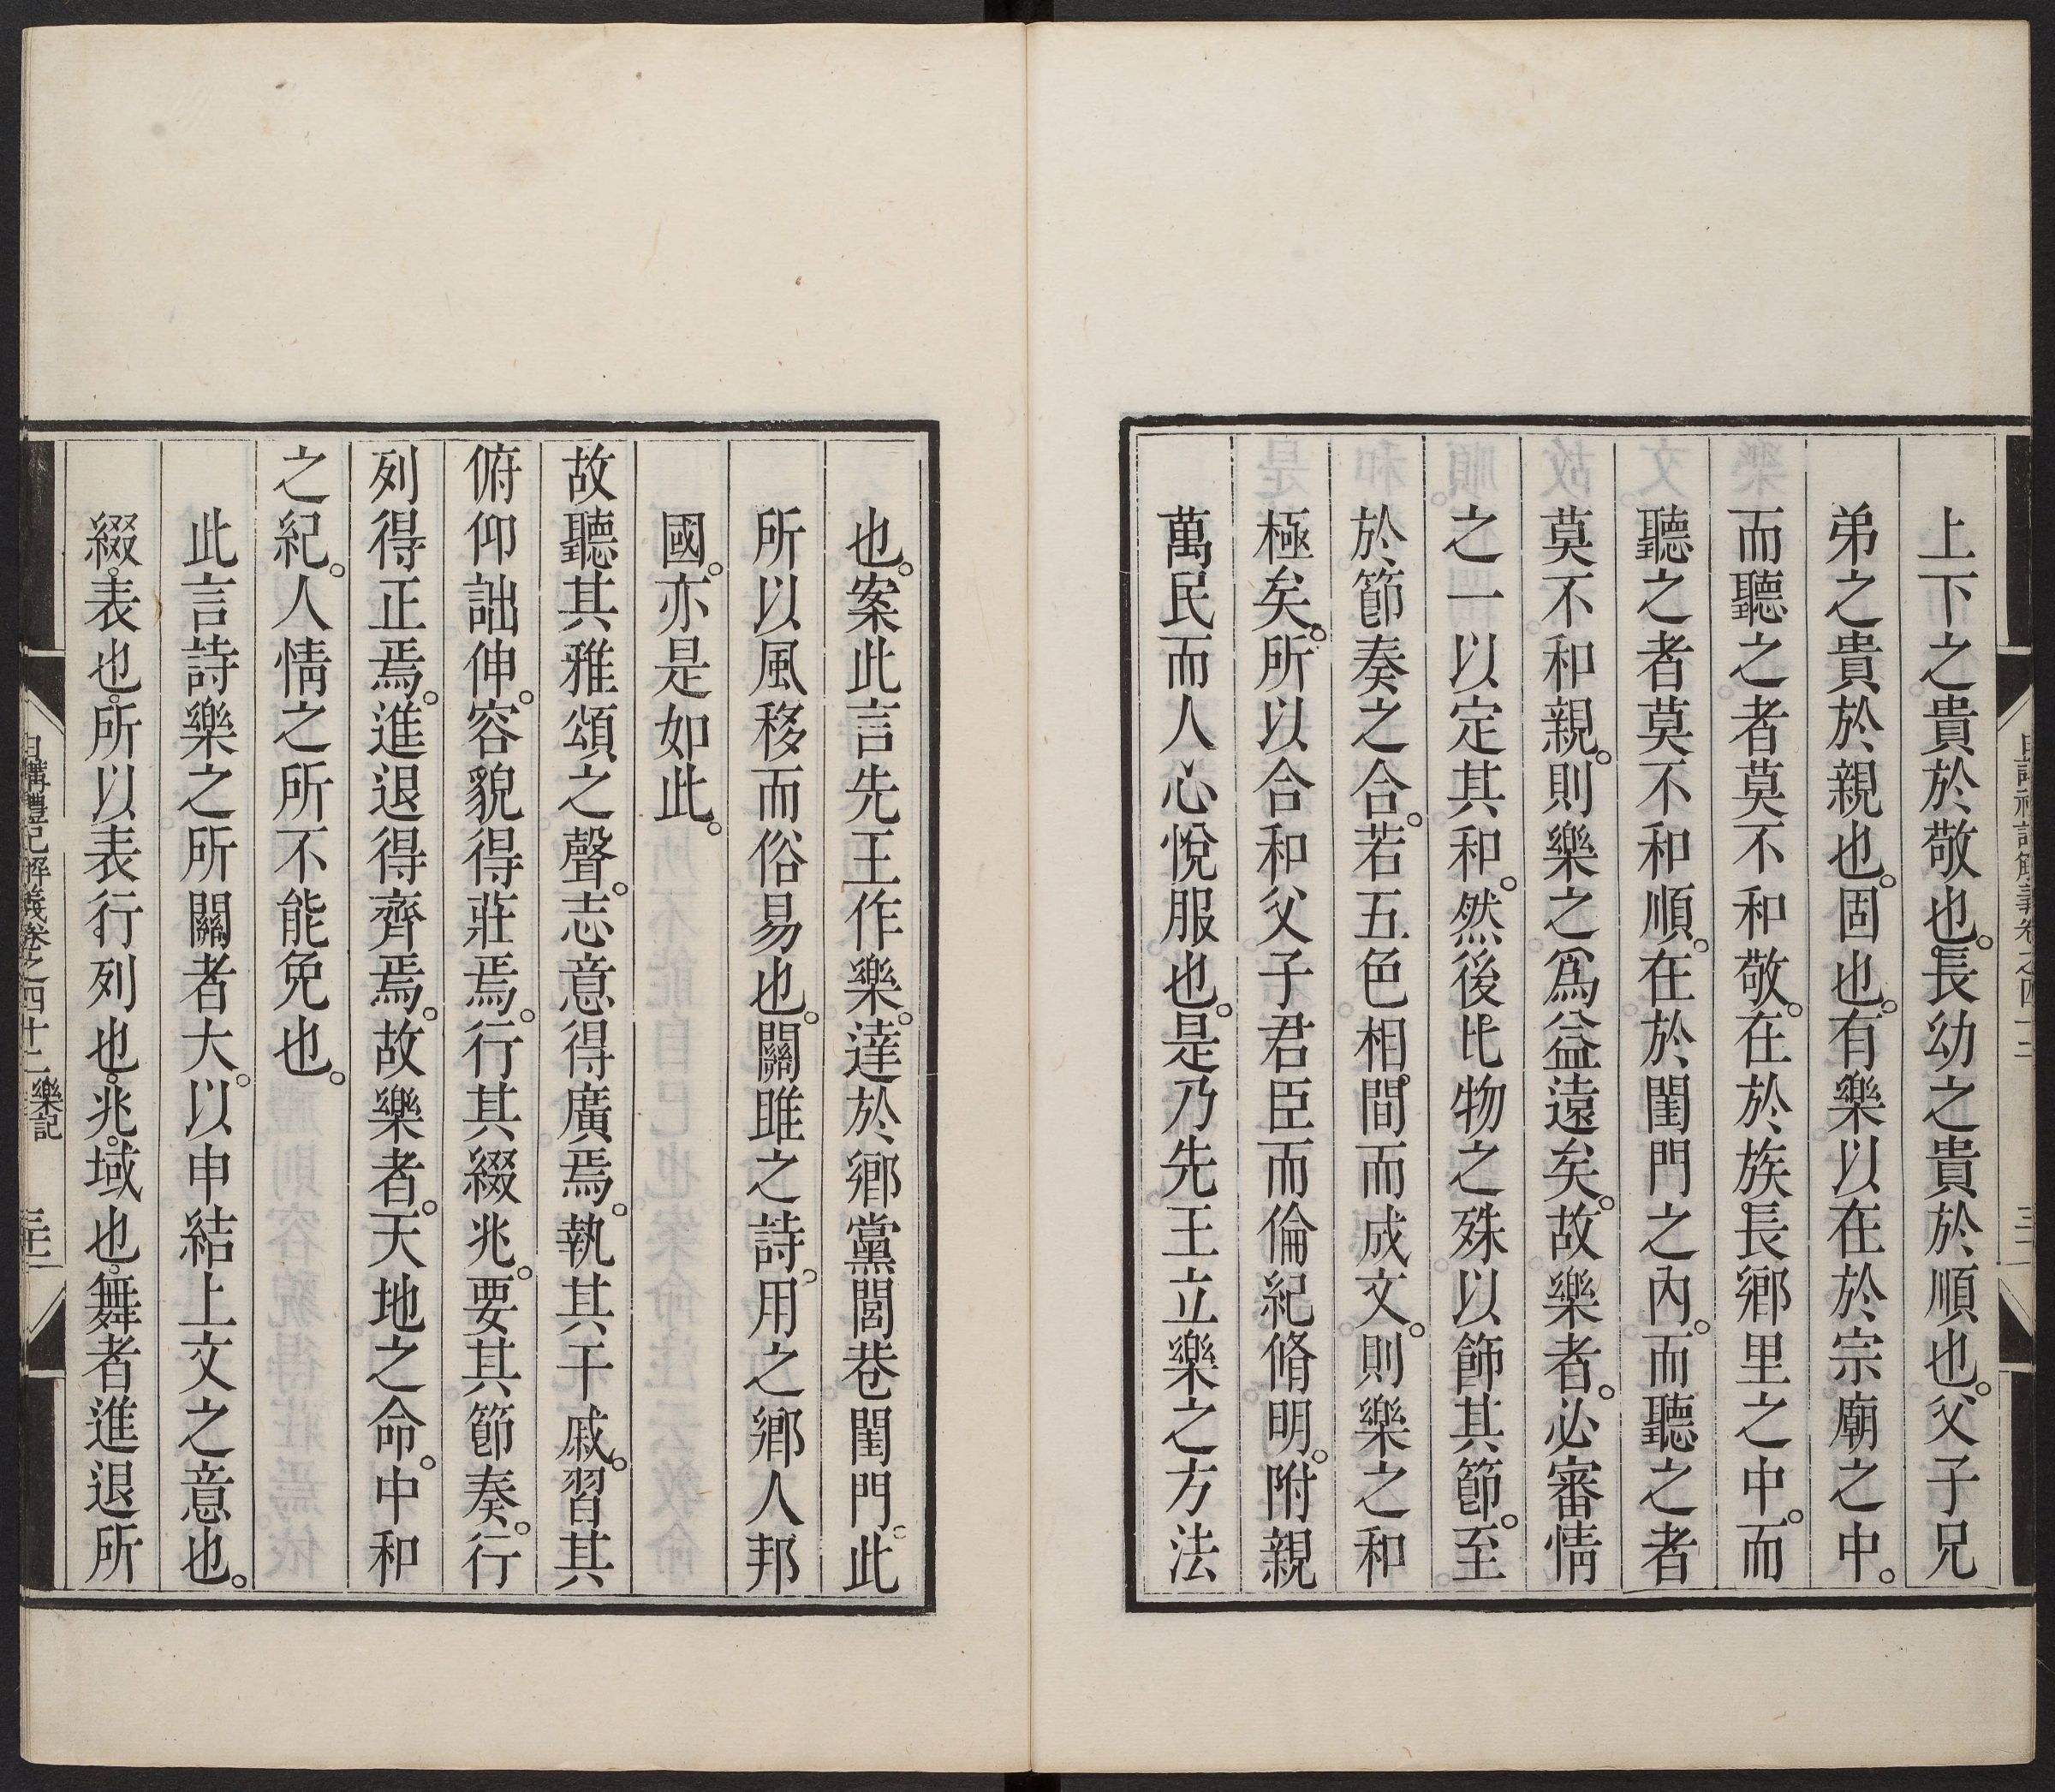 上下之貴於敬也。長幼之貴於順也。父子兄
弟之貴於親也。固也。有樂以在於宗廟之中。
而聽之者莫不和敬。在於族長鄉里之中。而
聽之者莫不和順。在於閨門之內。而聽之者
莫不和親。則樂之爲益遠矣。故樂者。必審情
之一以定其和。然後比物之殊以飾其節。至
於節奏之合。若五色相間而成文。則樂之和
極矣。所以合和父子君臣而倫紀脩明。附親
萬民而人心悅服也。是乃先王立樂之方法
也。案此言先王作樂。達於鄉黨閭巷閨門。此
所以風移而俗易也。關雎之詩。用之鄉人邦
國。亦是如此。
故聽其雅頌之聲。志意得廣焉。執其干戚。習其
俯仰詘伸。容貌得莊焉。行其綴兆。要其節奏。行
列得正焉。進退得齊焉。故樂者。天地之命。中和
之紀。人情之所不能免也。
此言詩樂之所關者大。以申結上文之意也。
綴。表也。所以表行列也。兆。域也。舞者進退所
日講禮記解義卷之四十二 樂記